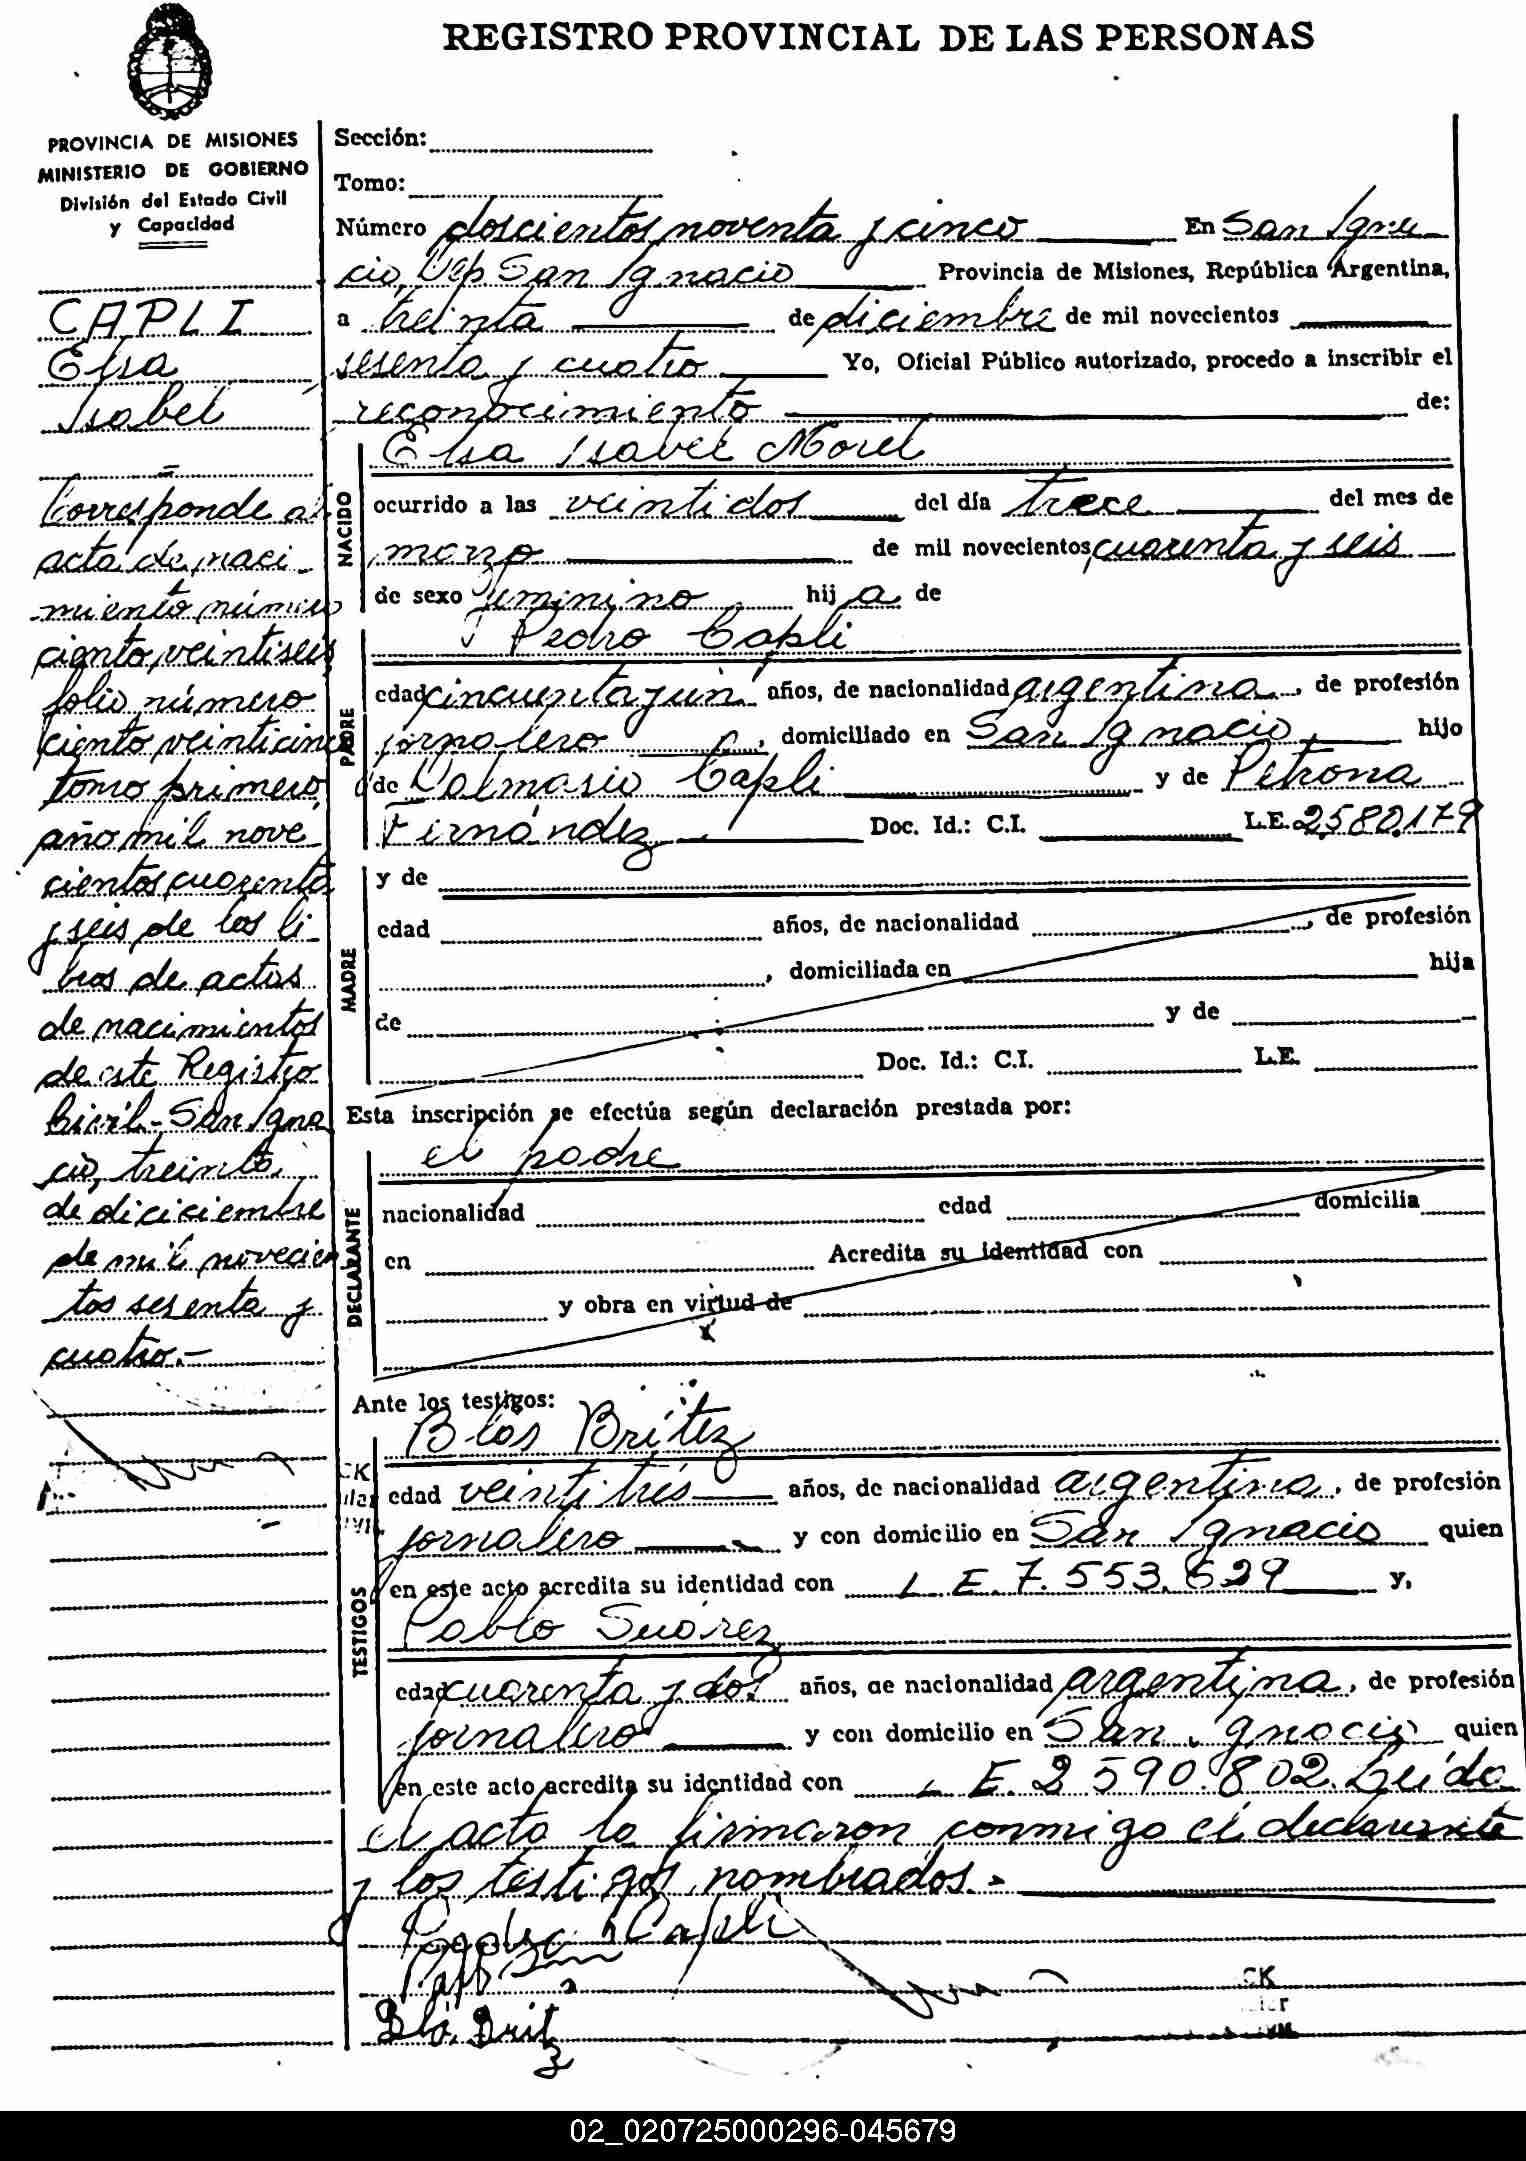 REGISTRO PROVINCIAL DE LAS PERSONAS
PROVINCIA DE MISIONES
MINISTERIO DE GOBIERNO
División del Estado Civil
y Capacidad
CAPLI
Elsa
Isabel
Corresponde al
acta de naci
miento número
ciento veintiseis
folio número
ciento veinticinco
tomo primero
año mil nove
cientos cuarenta
y seis de los li
bros de actas
de nacimientos
de este Registro
Civil.- San Igna
cio, treinta
de diciciembre
de mil novecien
tos sesenta y
cuatro.-
Sección:
Tomo:
Número doscientos noventa y cinco En San Igna
cio, Dep. San Ignacio Provincia de Misiones, República Argentina,
a treinta de diciembre de mil novecientos
sesenta y cuatro Yo, Oficial Público autorizado, procedo a inscribir el
reconocimiento de:
NACIDO
Elsa Isabel Morel
ocurrido a las veintidos del día trece del mes de
marzo de mil novecientos cuarenta y seis
de sexo femenino hij a de
PADRE
Pedro Capli
edad cincuenta y un años, de nacionalidad argentina, de profesión
jornalero, domiciliado en San Ignacio hijo
de Dalmasio Capli y de Petrona
Fernández Doc. Id.: C.I. L.E. 2580.179
MADRE
y de
edad años, de nacionalidad , de profesión
, domiciliada en hija
de y de
Doc. Id.: C.I. L.E.
Esta inscripción se efectúa según declaración prestada por:
DECLARANTE
el padre
nacionalidad edad domicilia
en Acredita su identidad con
y obra en virtud de
Ante los testigos:
TESTIGOS
Blas Britez
edad veintitrés años, de nacionalidad argentina, de profesión
jornalero y con domicilio en San Ignacio quien
en este acto acredita su identidad con L E. 7.553.629 y,
Pablo Suárez
edad cuarenta y dos años, de nacionalidad argentina, de profesión
jornalero y con domicilio en San Ignacio quien
en este acto acredita su identidad con L E. 2590.802. Leída
el acta la firmaron conmigo el declarante
y los testigos nombrados.-
Capli
02_020725000296-045679